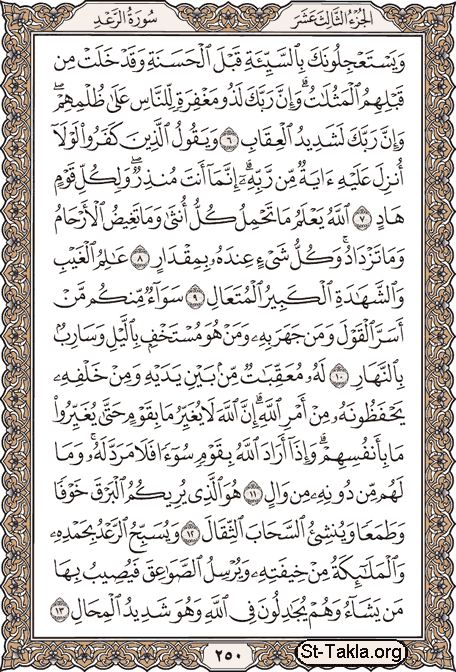 الجزء الثالث عشر
سورة الرعد
وَيَسْتَعْجِلُونَكَ بِٱلسَّيِّئَةِ قَبْلَ ٱلْحَسَنَةِ وَقَدْ خَلَتْ مِن
قَبْلِهِمُ ٱلْمَثُلَٰتُ ۗ وَإِنَّ رَبَّكَ لَذُو مَغْفِرَةٍ لِّلنَّاسِ عَلَىٰ ظُلْمِهِمْ ۖ
وَإِنَّ رَبَّكَ لَشَدِيدُ ٱلْعِقَابِ ٦ وَيَقُولُ ٱلَّذِينَ كَفَرُوا۟ لَوْلَآ
أُنزِلَ عَلَيْهِ ءَايَةٌ مِّن رَّبِّهِۦٓ ۗ إِنَّمَآ أَنتَ مُنذِرٌ ۖ وَلِكُلِّ قَوْمٍ
هَادٍ ٧ ٱللَّهُ يَعْلَمُ مَا تَحْمِلُ كُلُّ أُنثَىٰ وَمَا تَغِيضُ ٱلْأَرْحَامُ
وَمَا تَزْدَادُ ۖ وَكُلُّ شَىْءٍ عِندَهُۥ بِمِقْدَارٍ ٨ عَٰلِمُ ٱلْغَيْبِ
وَٱلشَّهَٰدَةِ ٱلْكَبِيرُ ٱلْمُتَعَالِ ٩ سَوَآءٌ مِّنكُم مَّنْ
أَسَرَّ ٱلْقَوْلَ وَمَن جَهَرَ بِهِۦ وَمَنْ هُوَ مُسْتَخْفٍۭ بِٱلَّيْلِ وَسَارِبٌۢ
بِٱلنَّهَارِ ١٠ لَهُۥ مُعَقِّبَٰتٌ مِّنۢ بَيْنِ يَدَيْهِ وَمِنْ خَلْفِهِۦ
يَحْفَظُونَهُۥ مِنْ أَمْرِ ٱللَّهِ ۗ إِنَّ ٱللَّهَ لَا يُغَيِّرُ مَا بِقَوْمٍ حَتَّىٰ يُغَيِّرُوا۟
مَا بِأَنفُسِهِمْ ۗ وَإِذَآ أَرَادَ ٱللَّهُ بِقَوْمٍ سُوٓءًا فَلَا مَرَدَّ لَهُۥ ۚ وَمَا
لَهُم مِّن دُونِهِۦ مِن وَالٍ ١١ هُوَ ٱلَّذِى يُرِيكُمُ ٱلْبَرْقَ خَوْفًا
وَطَمَعًا وَيُنشِئُ ٱلسَّحَابَ ٱلثِّقَالَ ١٢ وَيُسَبِّحُ ٱلرَّعْدُ بِحَمْدِهِۦ
وَٱلْمَلَٰٓئِكَةُ مِنْ خِيفَتِهِۦ وَيُرْسِلُ ٱلصَّوَٰعِقَ فَيُصِيبُ بِهَا
مَن يَشَآءُ وَهُمْ يُجَٰدِلُونَ فِى ٱللَّهِ وَهُوَ شَدِيدُ ٱلْمِحَالِ ١٣
٢٥٠
St-Takla.org